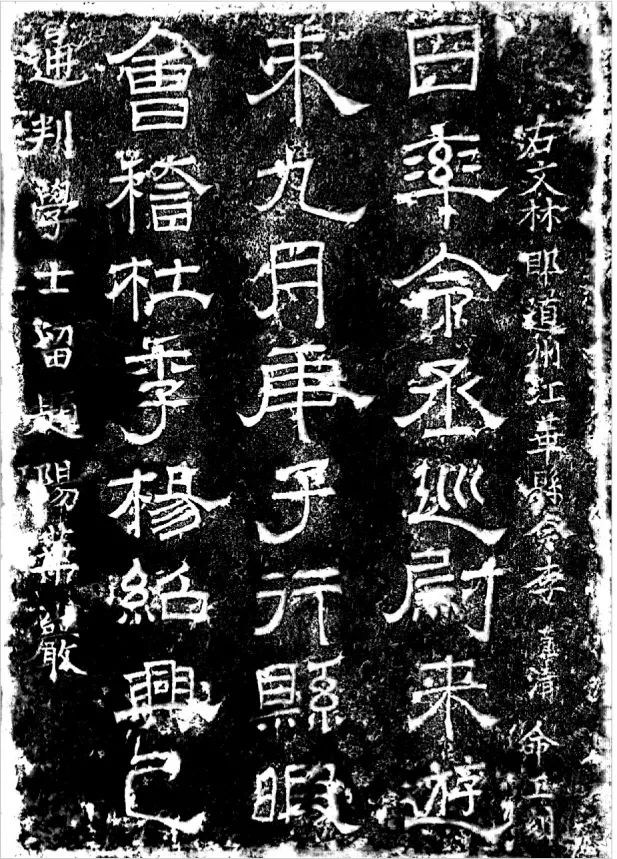 通判學士留題陽華巖
會稽杜季楊紹興己
未九月庚子行縣暇
因率令丞巡尉來遊
右文林郎道州江華縣令李 清 命工刻